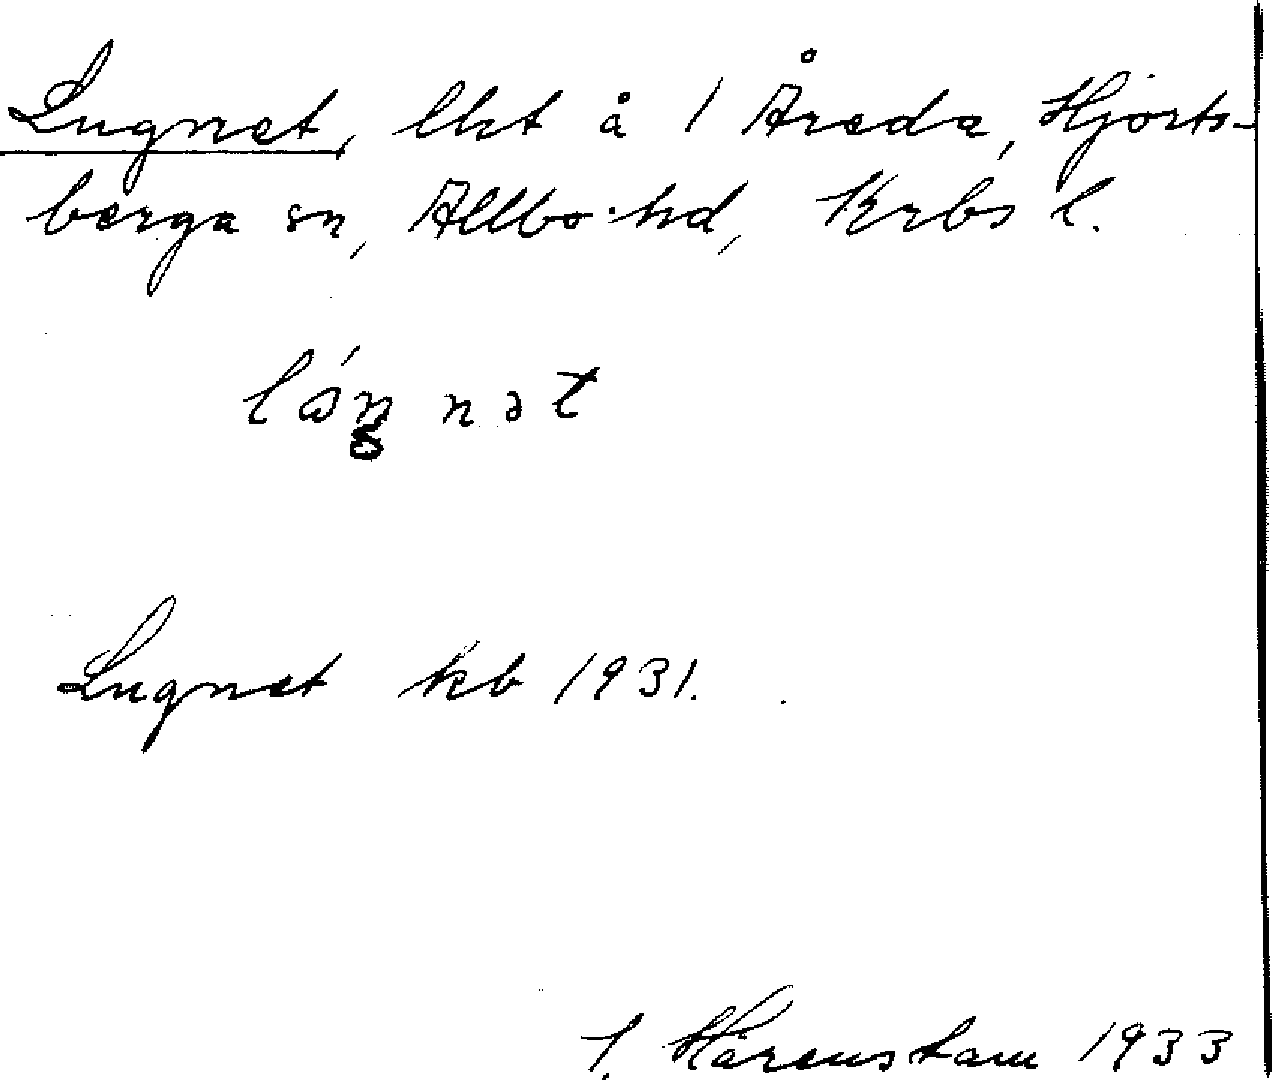 Lugnet, lht å 1 Åreda, Hjorts-
berga sn, Allbo hd, Krbs l.
nət
Lugnet kb 1931.
Härenstam 1933